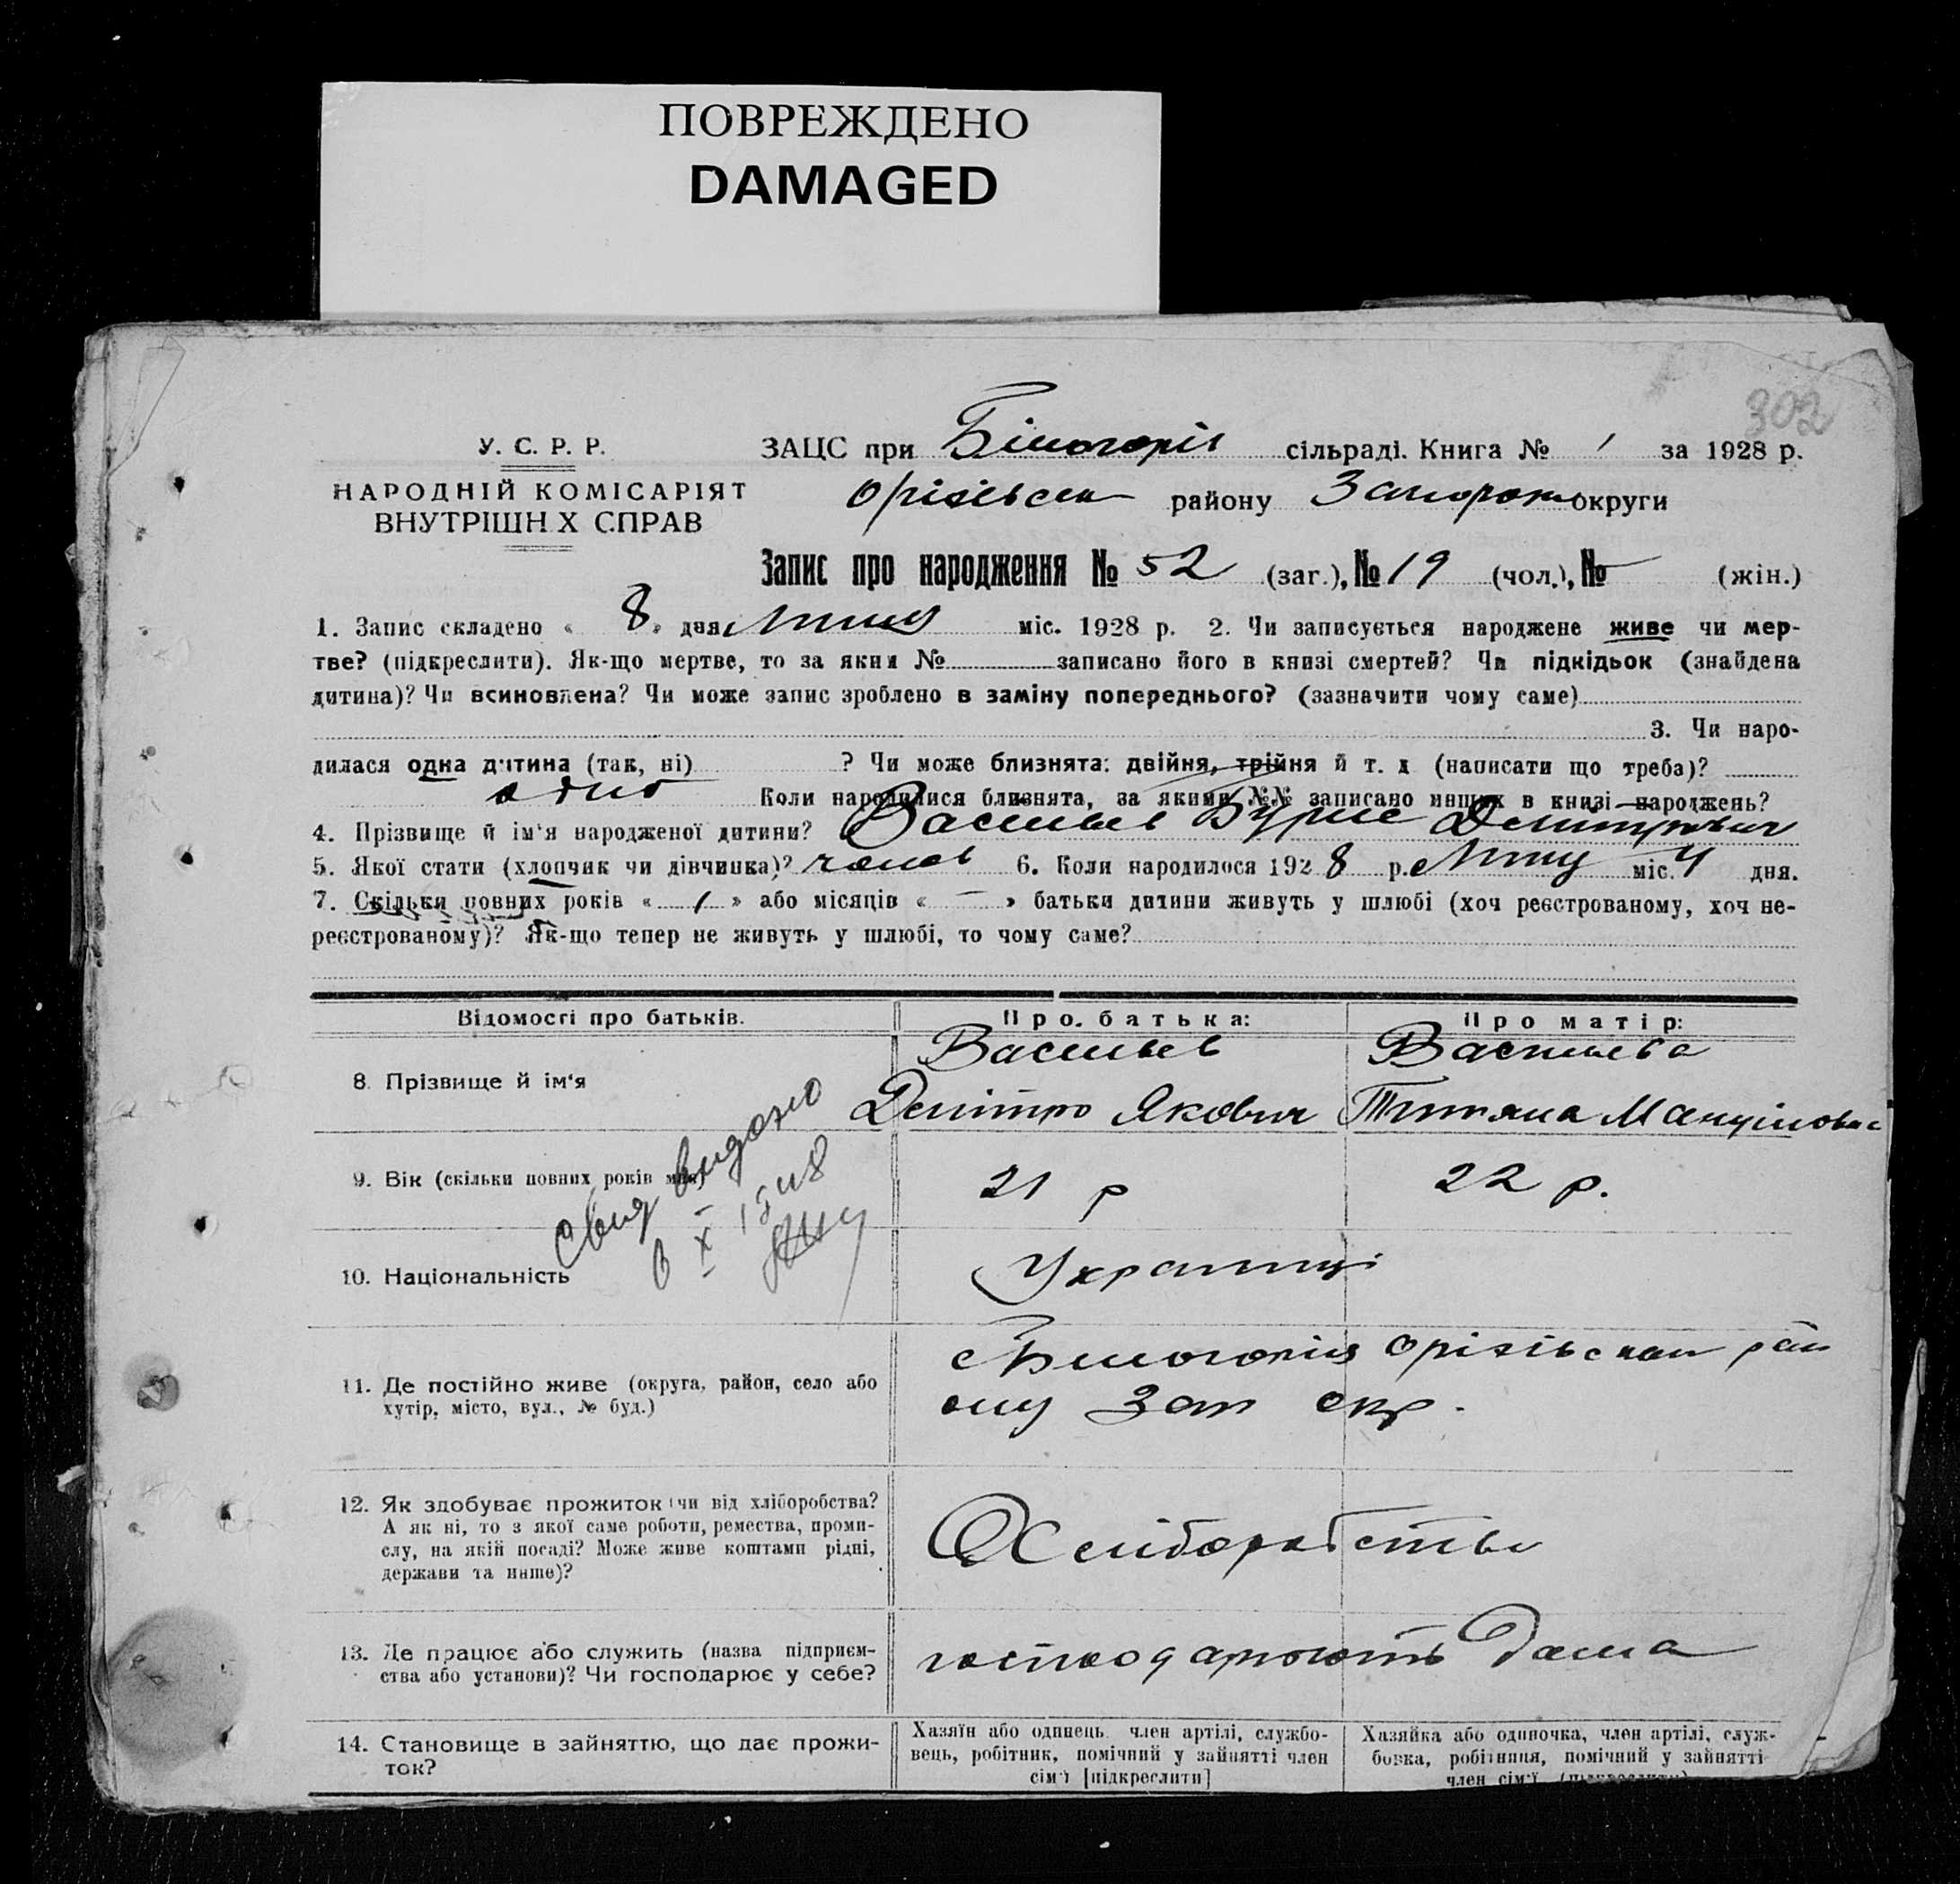 ПОВРЕЖДЕНО
DAMAGED
302
У. С. Р. Р.
НАРОДНІЙ КОМІСАРІЯТ
ВНУТРІШН Х СПРАВ
ЗАЦС при Білогорів сільраді. Книга № 1 за 1928 р.
Орізівськ району Запорож округи
Запис про народження № 52 (заг.), № 19 (чол.), № — (жін.)
1. Запис складено « 8 » дня Липця міс. 1928 р. 2. Чи записується народжене живе чи мер-
тве? (підкреслити). Як-що мертве, то за яким № записано його в книзі смертей? Чи підкідьок (знайдена
дитина)? Чи всиновлена? Чи може запис зроблено в заміну попереднього? (зазначити чому саме)
3. Чи наро-
дилася одна дитина (так, ні) ? Чи може близнята: двійня, трійня й т. д (написати що треба)?
одно Коли народилися близнята, за якими №№ записано инших в книзі народжень?
4. Прізвище й ім'я народженої дитини? Васильев Бурис Демитрович
5. Якої стати (хлопчик чи дівчинка)? чолов 6. Коли народилося 1928 р. Липц міс. 4 дня.
7. Скільки повних років « 1 » або місяців « — » батьки дитини живуть у шлюбі (хоч реєстрованому, хоч не-
реєстрованому)? Як-що тепер не живуть у шлюбі, то чому саме?
Відомості про батьків.
Про батька:
Про матір:
8. Прізвище й ім'я
Васильев
Демітро Якович
Васильева
Титяна
9. Вік (скільки повних років мин)
21 р
22 р.
Свид видано
10. Національність
Українці
11. Де постійно живе (округа, район, село або
хутір, місто, вул., № буд.)
с Білогорія Орізівскаи рай
ону Зап окр.
12. Як здобуває прожиток (чи від хліборобства?
А як ні, то з якої саме роботи, ремества, проми-
слу, на якій посаді? Може живе коштами рідні,
держави та инше)?
Хліборобство
13. Де працює або служить (назва підприєм-
ства або установи)? Чи господарює у себе?
господарюють дома
14. Становище в зайняттю, що дає прожи-
ток?
Хазяїн або одинець член артілі, службо-
вець, робітник, помічний у зайнятті член
сім'ї [підкреслити]
Хазяйка або одиночка, член артілі, служ-
бовка, робітниця, помічний у зайнятті
член сім'ї (підкреслити)